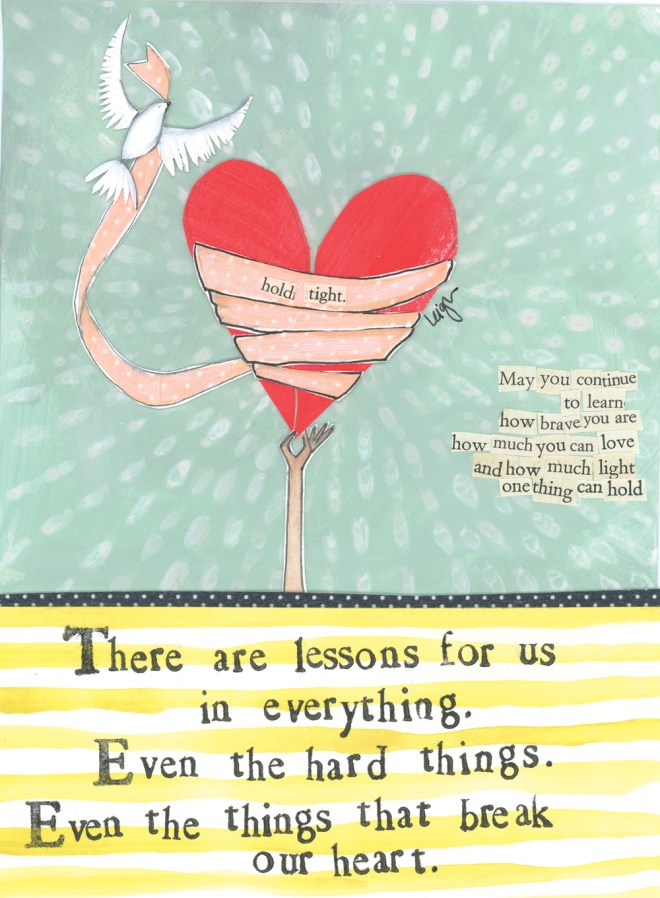 hold tight.
Leigh
May you continue
to learn
how brave you are
how much you can love
and how much light
one thing can hold
There are lessons for us
in everything.
Even the hard things.
Even the things that break
our heart.